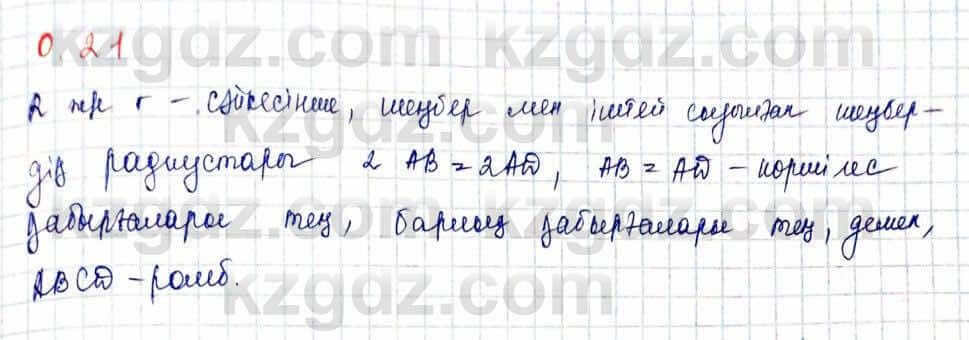 0.21
R мен r – сәйкесінше, шеңбер мен іштей сызылған шеңбер-
дің радиустары 2AB = 2AD, AB = AD – көршілес
қабырғалары тең, барлық қабырғалары тең, демек,
ABCD – ромб.
kzgdz.com kzgdz.com
kzgdz.com kzgdz.com
kzgdz.com kzgdz.com